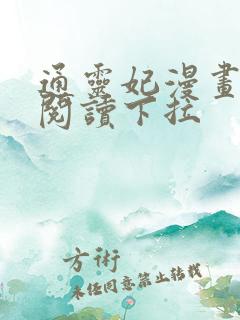 通靈妃漫畫
閱讀下拉
方術
未經同意禁止轉載